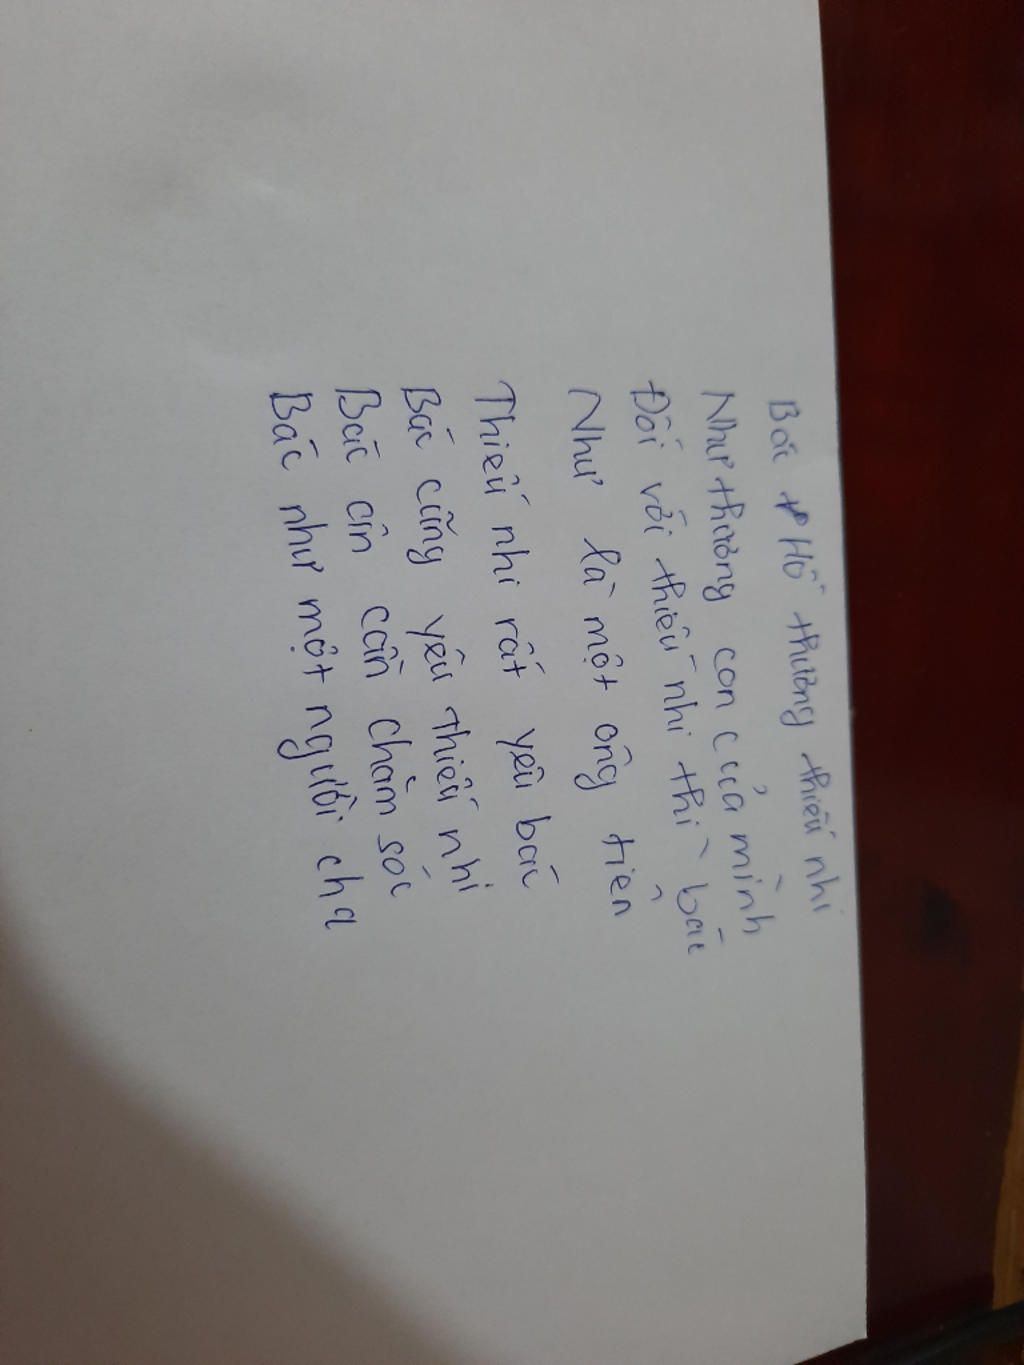 Bác Hồ thương thiếu nhi
Như thương con của mình
Đối với thiếu nhi thì bác
Như là một ông tiên
Thiếu nhi rất yêu bác
Bác cũng yêu thiếu nhi
Bác ân cần chăm sóc
Bác như một người cha